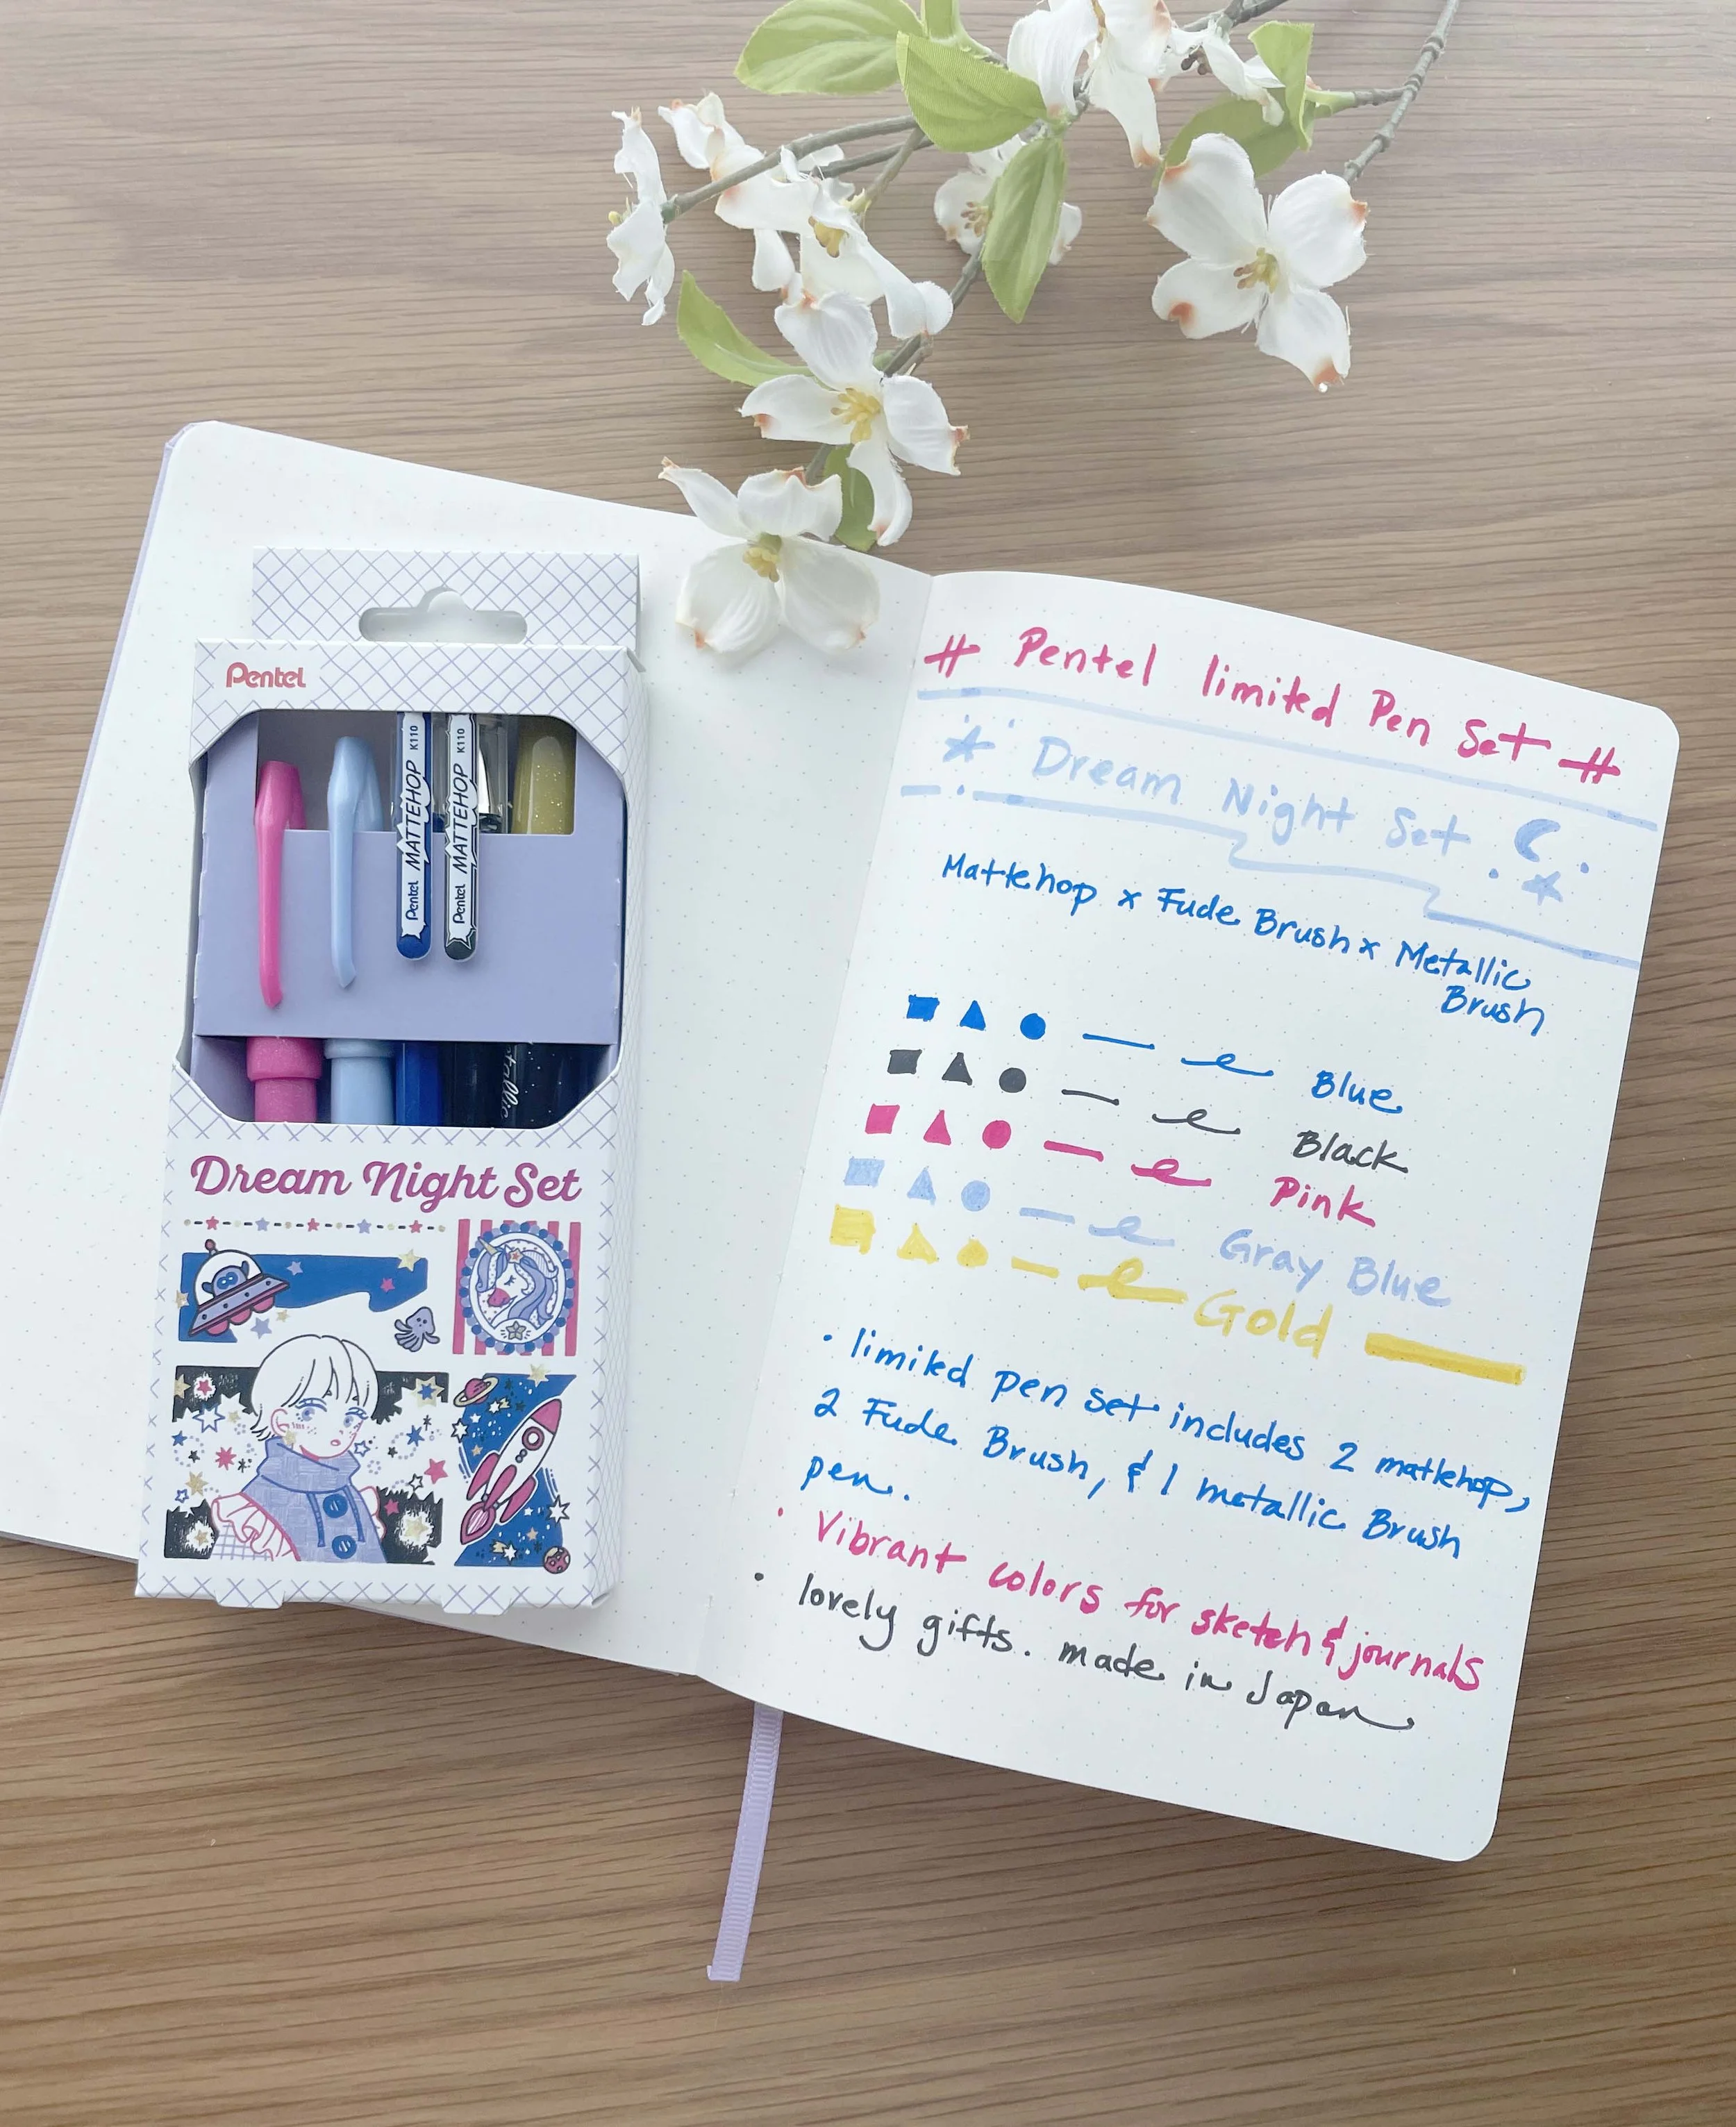 Pentel
K110
K110
Pentel MATTEHOP
Pentel MATTEHOP
Dream Night Set
# Pentel limited Pen Set #
Dream Night Set
Mattehop x Fude Brush x Metallic
Brush
Blue
Black
Pink
Gray Blue
Gold
• limited pen set includes 2 mattehop,
2 Fude Brush, & 1 metallic Brush
pen.
• Vibrant colors for sketch & journals
• lovely gifts. made in Japan